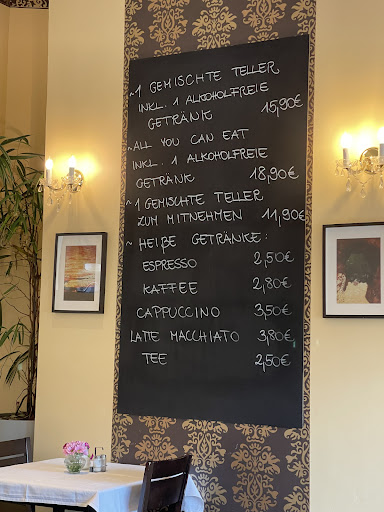 ~1 GEMISCHTE TELLER
INKL. 1 ALKOHOLFREIE
GETRÄNK 15,90€
~ALL YOU CAN EAT
INKL. 1 ALKOHOLFREIE
GETRÄNK 18,90€
~1 GEMISCHTE TELLER
ZUM MITNEHMEN 11,90€
~ HEIßE GETRÄNKE:
ESPRESSO 2,50€
KAFFEE 2,80€
CAPPUCCINO 3,50€
LATTE MACCHIATO 3,80€
TEE 2,50€